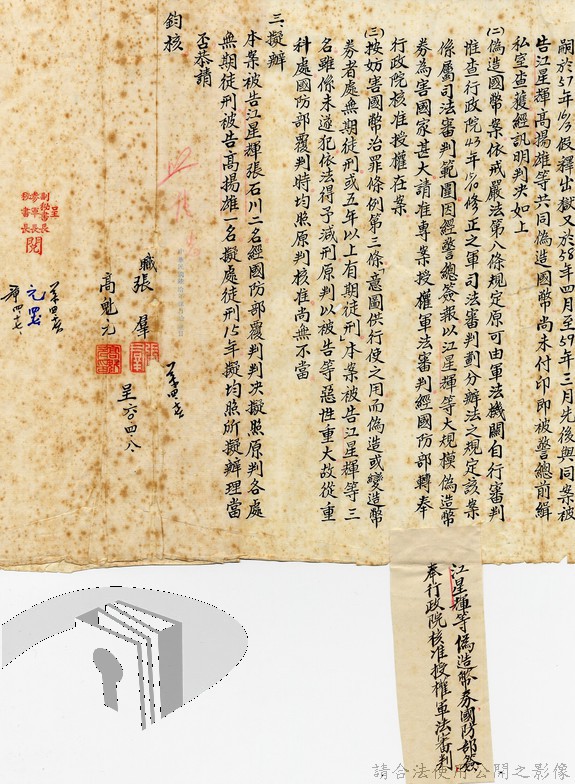 嗣於57年10/3假釋出獄又於58年四月至59年三月先後與同案被
告江星輝高揚雄等共同偽造國幣尚未付印即被警總前緝
私室查獲經訊明判決如上
㈡偽造國幣案依戒嚴法第八條規定原可由軍法機關自行審判
惟查行政院43年10/10修正之軍司法審判劃分辦法之規定該案
係屬司法審判範圍因經警總簽報以江星輝等大規模偽造幣
券為害國家甚大請准專案授權軍法審判經國防部轉奉
行政院核准授權在案
㈢按妨害國幣治罪條例第三條「意圖供行使之用而偽造或變造幣
券者處無期徒刑或五年以上有期徒刑」本案被告江星輝等三
名雖係未遂犯依法得予減刑原判以被告等惡性重大故從重
科處國防部覆判時均照原判核准尚無不當
三、擬辦
本案被告江星輝張石川二名經國防部覆判判決擬照原判各處
無期徒刑被告高揚雄一名擬處徒刑15年擬均照所擬辦理當
否恭請
鈞核
職張羣
高魁元
呈六四八
呈
副秘書長
參軍長
秘書長
閱
江星輝等偽造幣券國防部簽
奉行政院核准授權軍法審判
請合法使用公開之影像